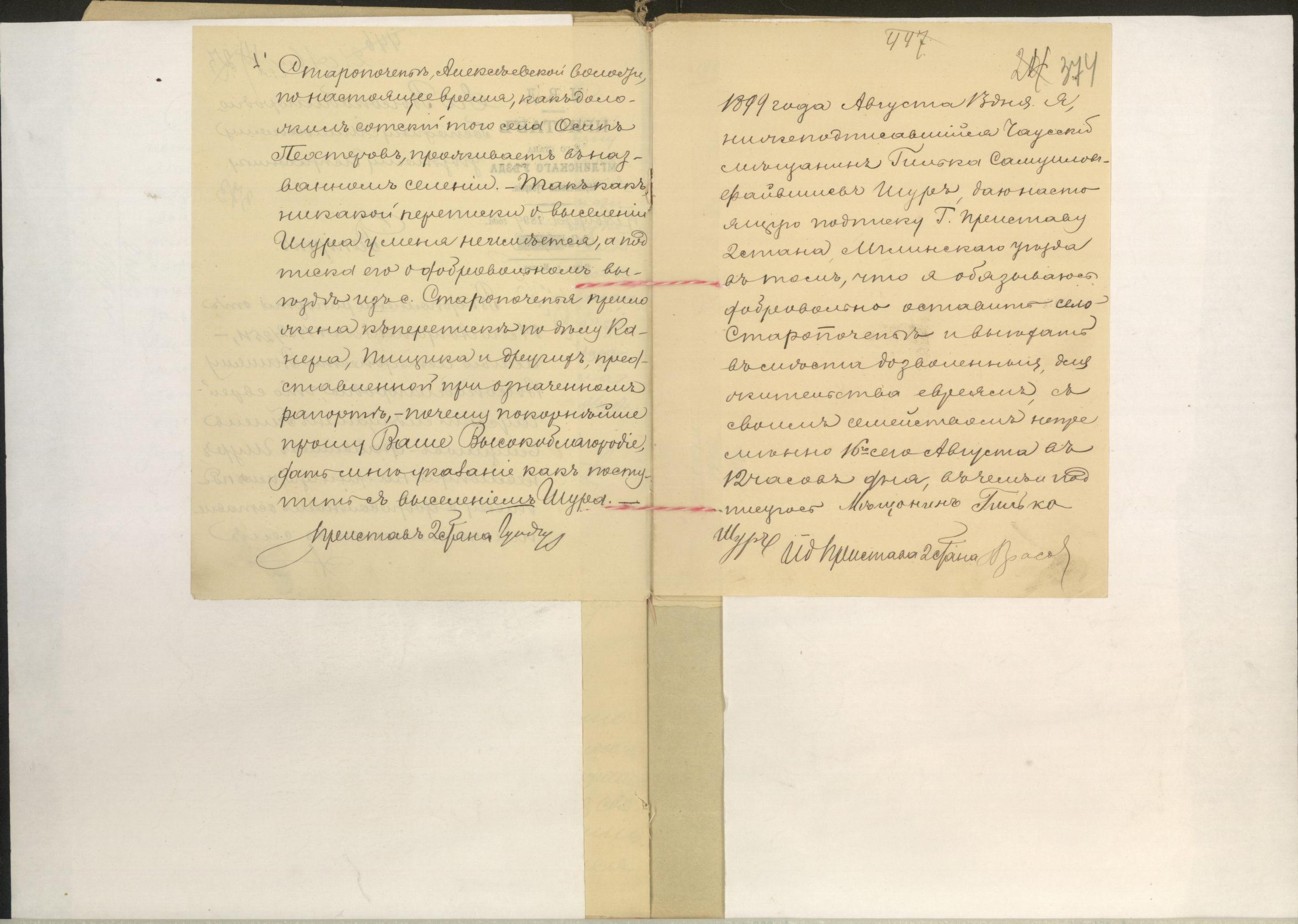 Старопочепъ, Алексѣевской волости,
по настоящее время, какъ доло-
жилъ сотскій того села Осипъ
Пехтеровъ, проживаетъ въ наз-
ванномъ селеніи. – Такъ какъ
никакой переписки о выселеніи
Шура у меня не имѣется, а под
писка его о добровольномъ вы-
ѣздѣ изъ с. Старопочепья прило
жена къ перепискѣ по дѣлу Ка-
нера, Пищика и другихъ, пред-
ставленной при означенномъ
рапортѣ, – почему покорнѣйше
прошу Ваше Высокоблагородіе,
дать мнѣ указаніе какъ посту-
пить съ выселеніемъ Шура. –
Приставъ 2 стана
447
374
1899 года Августа 13 дня Я,
нижеподписавшійся Чаусскій
мѣщанинъ Гилька Самуилов-
Файвишевъ Шуръ, даю насто
ящую подписку Г. Приставу
2 стана, Мглинскаго уѣзда
въ томъ, что я обязываюсь
добровольно оставить село
Старопочепъ и выѣхать
въ мѣста дозволенныя, для
жительства евреямъ, съ
своимъ семействомъ непре
мѣнно 16го сего Августа въ
12 часовъ дня, въ чемъ и под
писуюсь Мѣщанинъ Гилько
Шуръ
ИД Пристава 2 стана